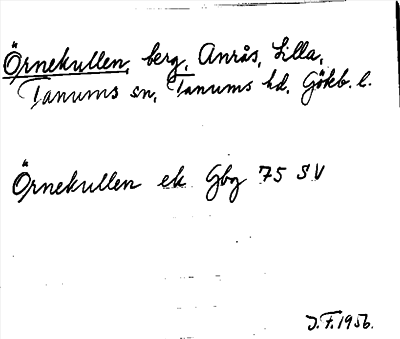 Örnekullen, berg, Anrås, Lilla,
Tanums sn, Tanums hd, Gökb. l.
Örnekullen ek Gbg 75 SV
J.F. 1956.